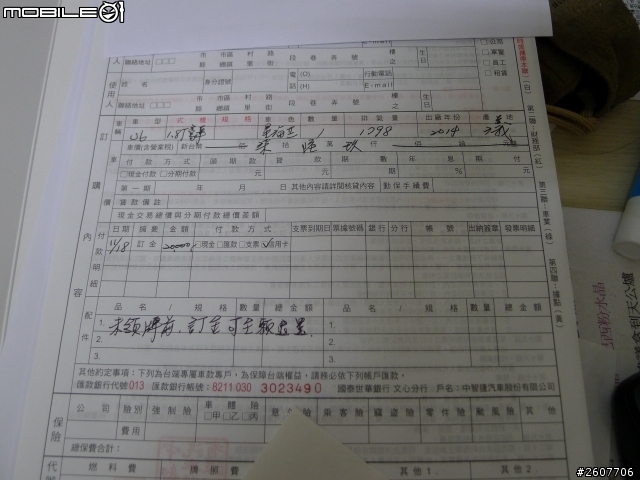 mobile01
人 聯絡地址 □□□ 市 市區 村 路 縣 鄉鎮 里 街 段 巷 弄 號 樓 之 生日
□公司
使用人 姓名 身份證號 電話 (O) (H) 行動電話 E-mail
□軍警
□員工
□租賃
聯絡地址 □□□ 市 市區 村 路 縣 鄉鎮 里 街 段 巷 弄 號 樓 之 生日
訂購內容
車輛 車型 式樣規格 車色 數量 排氣量 出廠年份 產地
U6 1 1798 2014
車價 車價(含營業稅) 新台幣 佰 柒 拾 萬 玖 仟 佰 拾 元
付款方式 頭期款 分期金額 期數 年息 期付款
□現金付款 □分期付款 元 元 期 % 元
第一期 年 月 日 其他內容請詳閱核貸內容 動保手續費
貸款備註
現金交易總價與分期付款總價差額
付款明細 日期 摘要 金額 付款方式 支票到期日 票據號碼 銀行 分行 帳號 出納簽章 發票明細
11/18 訂金 20,000 □現金 □匯款 □支票 ☑信用卡
配件 品名 / 規格 數量 總金額 品名 / 規格 數量 總金額
1. 未領牌前 訂金可全額退還. 1.
2. 2.
3. 3.
其他約定事項：下列為台端專屬車款專戶，為保障台端權益，請務必依下列帳戶匯款。
匯款銀行代號013 匯款銀行帳號：8211 030 3023490 國泰世華銀行 文心分行 戶名：中智捷汽車股份有限公司
保險 公司 險別 強制險 車體險 □甲□乙□丙 意 險 乘客險 竊盜險 零件險 颱風險 其他
費用
總保費合計：
代 燃料費 機關費 其他1. 其他2.
第二聯：財務部(紅)
第三聯：車業(綠)
第四聯：據點(黃)
西粉水晶
#2607706